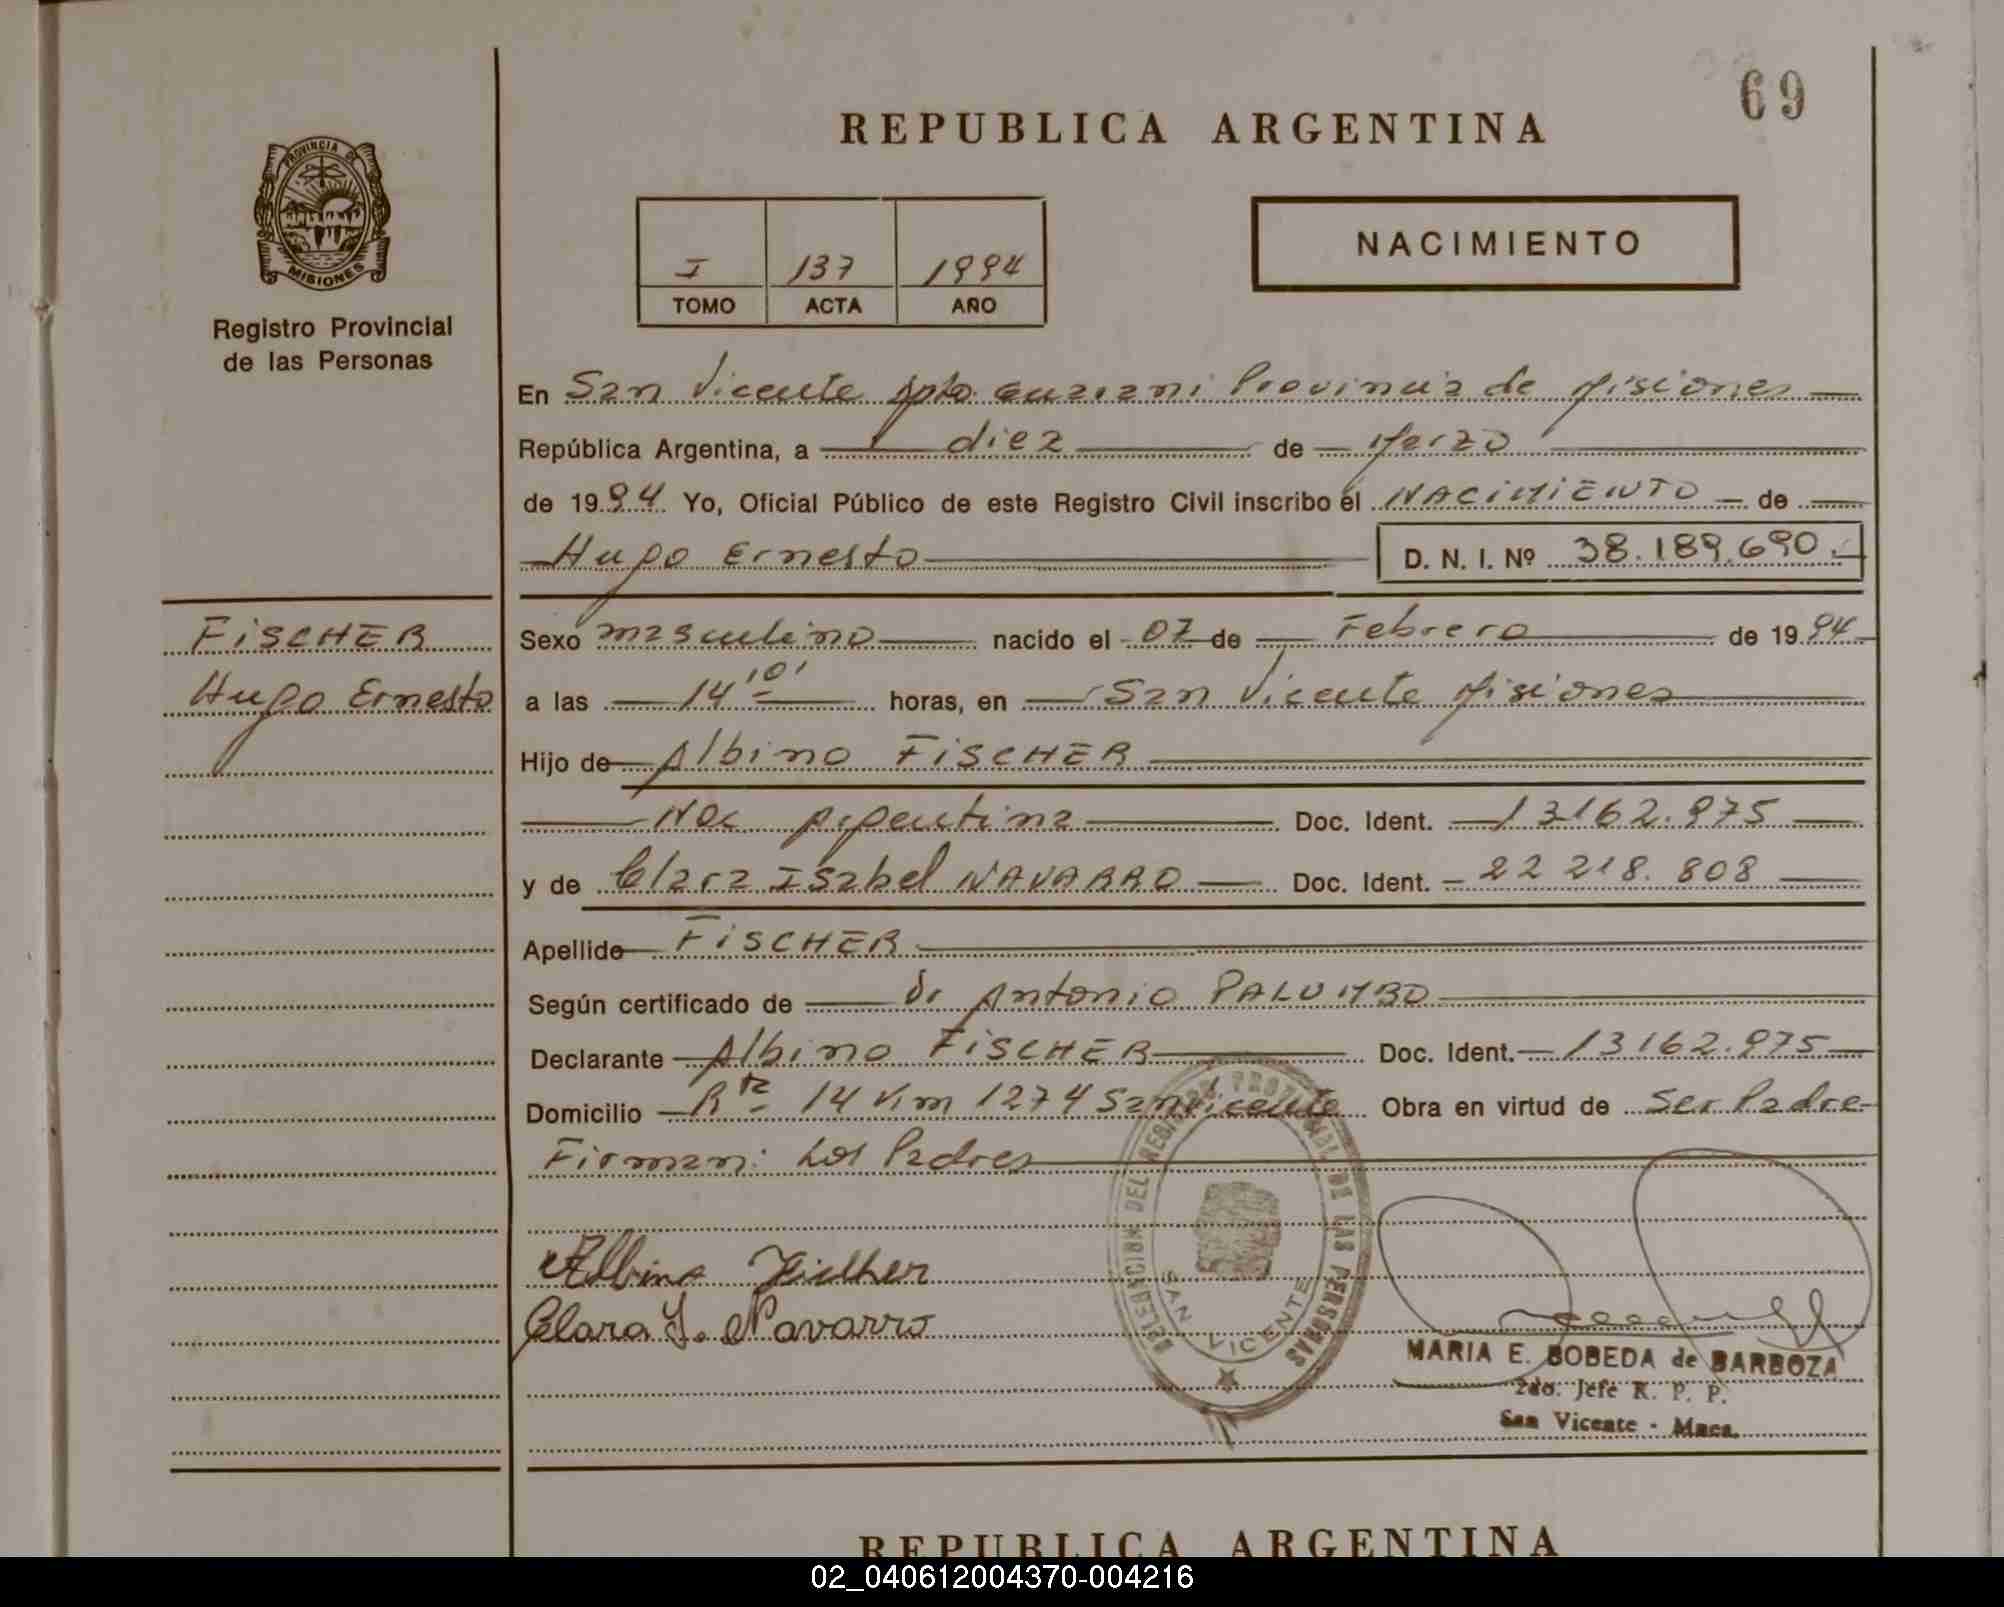 69
REPUBLICA ARGENTINA
PROVINCIA DE
MISIONES
Registro Provincial
de las Personas
I 137 1994
TOMO ACTA AÑO
NACIMIENTO
En San Vicente Dpto Guarani Provincia de Misiones
República Argentina, a diez de Marzo
de 1994 Yo, Oficial Público de este Registro Civil inscribo el NACIMIENTO de
Hugo Ernesto D. N. I. Nº 38.189.690.
FISCHER
Hugo Ernesto
Sexo masculino nacido el 07 de Febrero de 1994
a las 14 10' horas, en San Vicente Misiones
Hijo de Albino FISCHER
Nac Argentina Doc. Ident. 13162.975
y de Clara Isabel NAVARRO Doc. Ident. 22 218.808
Apellido FISCHER
Según certificado de Dr Antonio PALUMBO
Declarante Albino FISCHER Doc. Ident. 13162.975
Domicilio Rta 14 Km 1274 San Vicente Obra en virtud de Ser Padre
Firman: Los Padres
Albino Fischer
Clara I. Navarro
DELEGACION DEL REGISTRO PROVINCIAL DE LAS PERSONAS
SAN VICENTE
MARIA E. BOBEDA de BARBOZA
2do. Jefe R. P. P.
San Vicente - Mnes.
REPUBLICA ARGENTINA
02_040612004370-004216